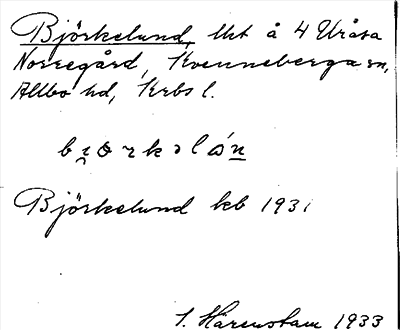 Björkelund, lht å 4 Uråsa
Norregård, Kvenneberga sn,
Allbo hd, Krbs l.
bi̯ɔrkəlún
Björkelund kb 1931
S. Härenstam 1933